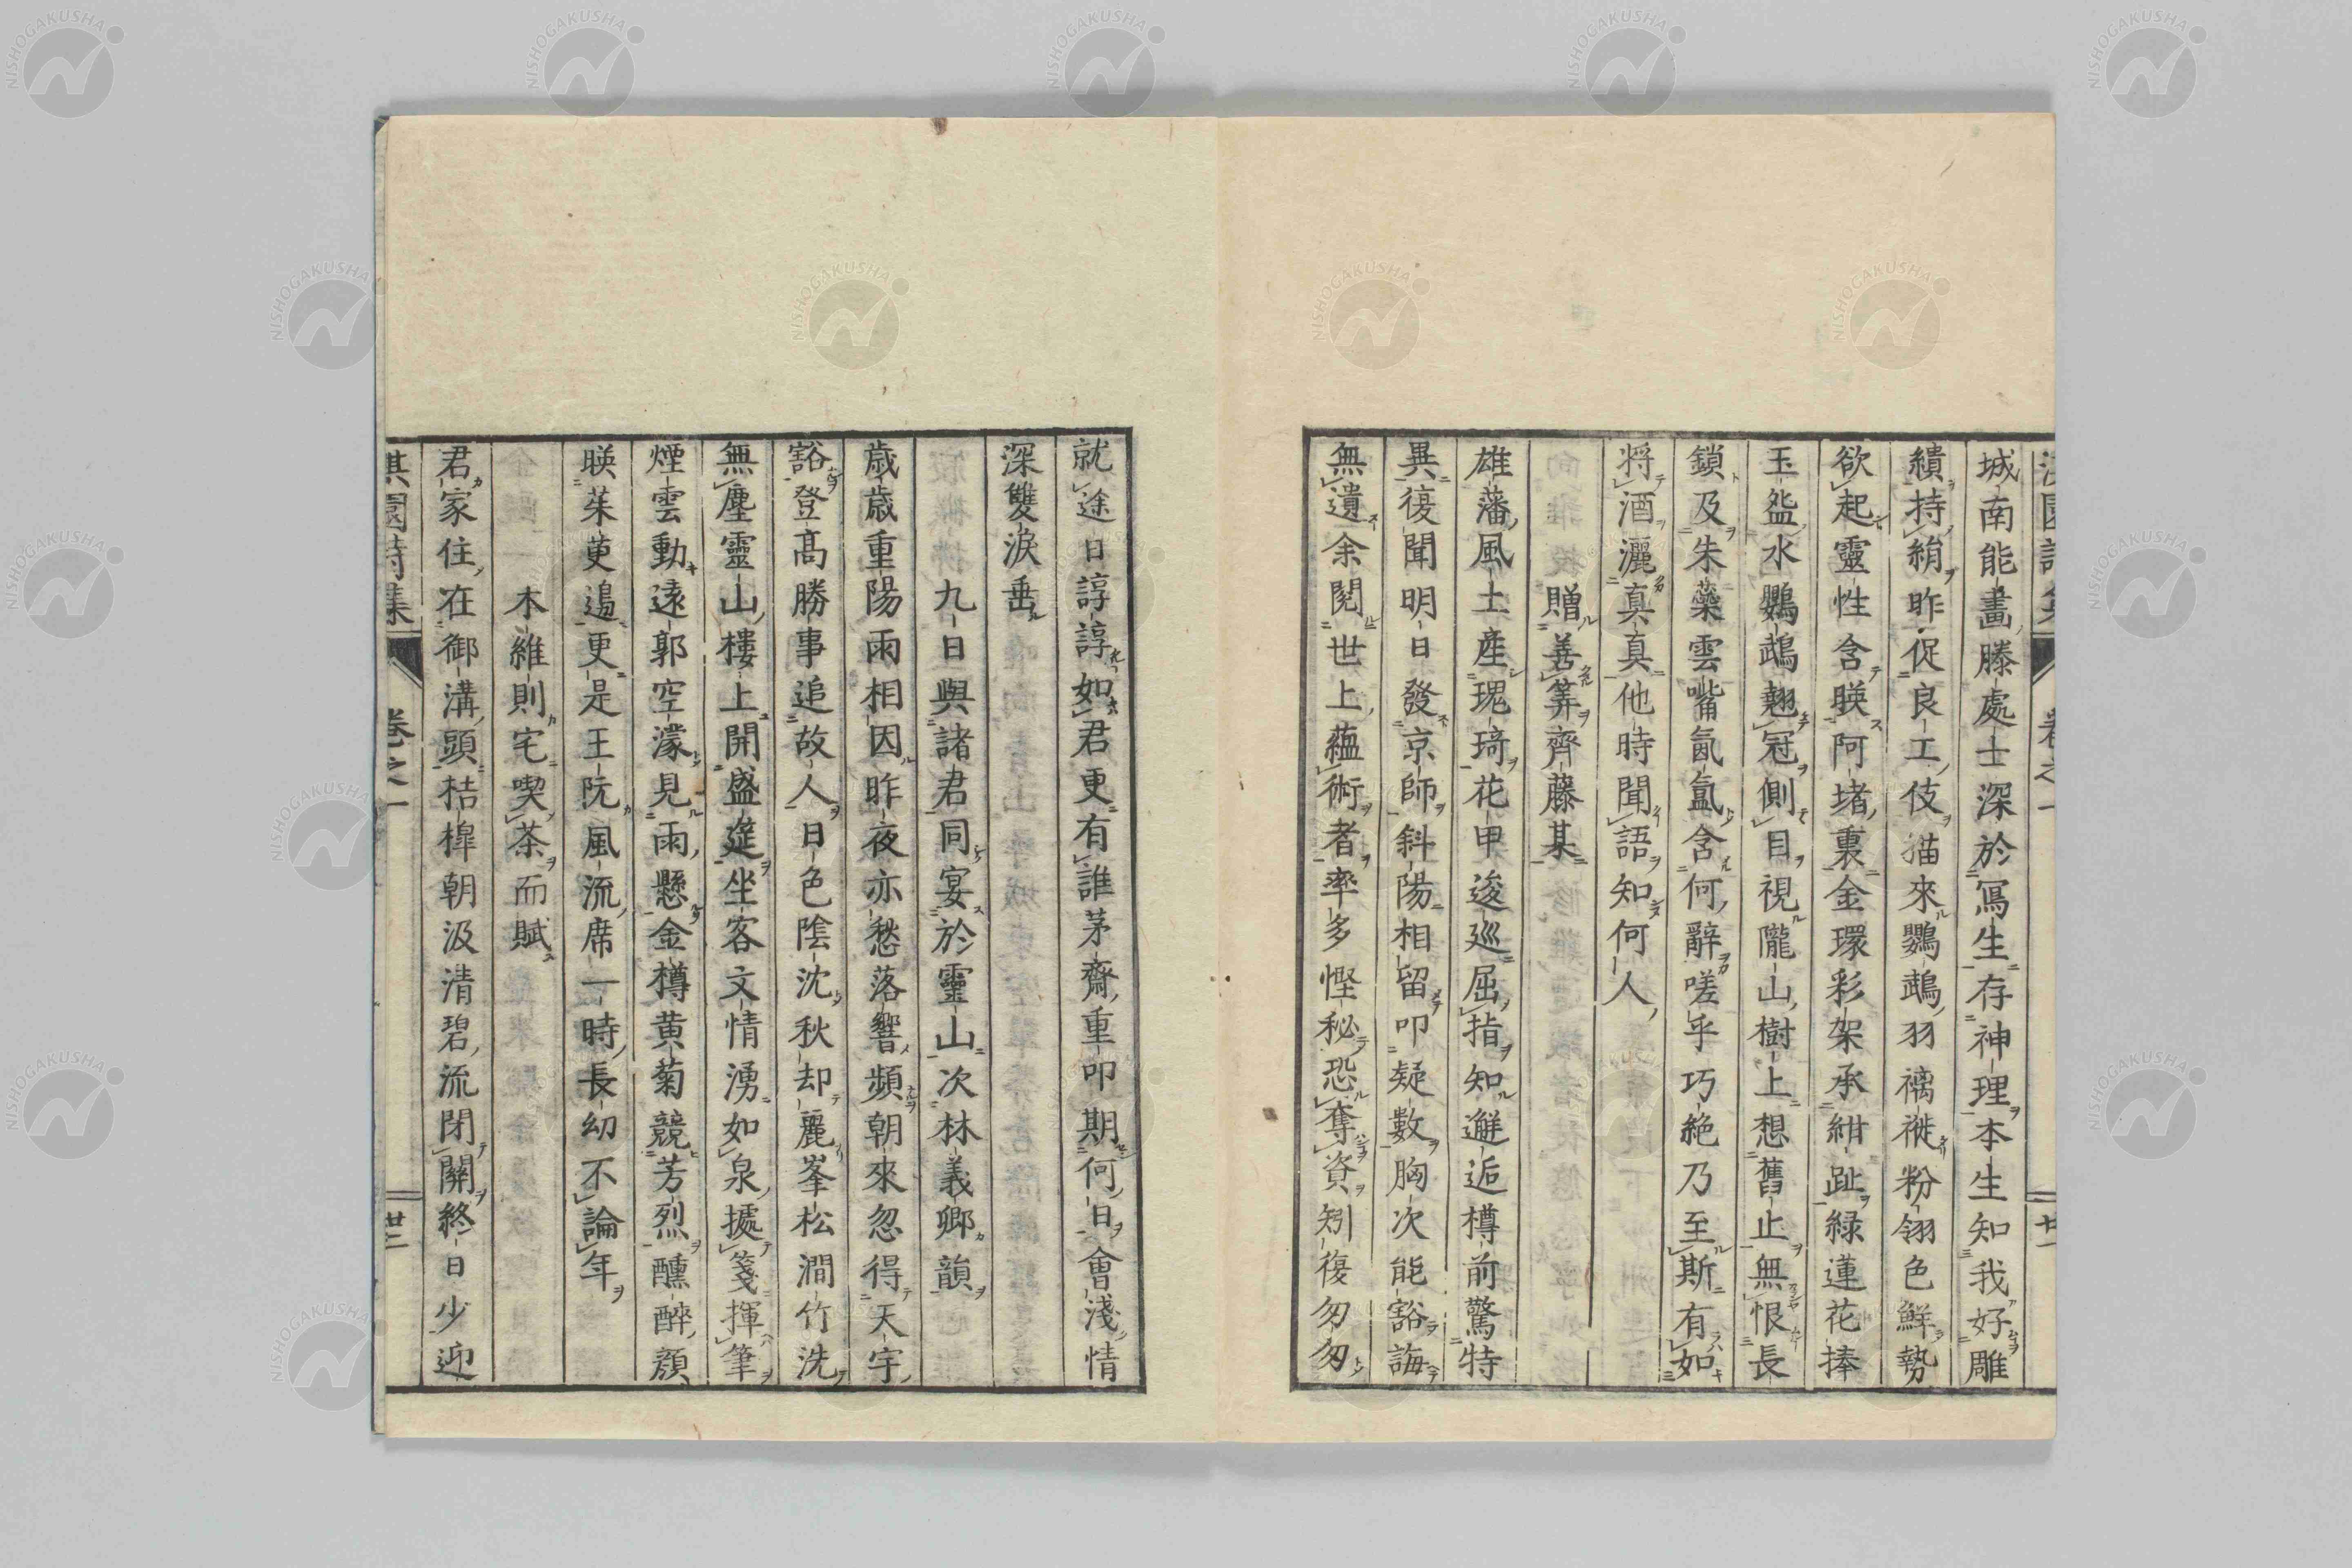 城南能畫滕處士深於寫生存神理本生知我好雕
繢持絹昨促良工伎描來鸚鵡羽褵褷粉翎色鮮勢
欲起靈性含睽阿堵裏金環彩架承紺趾緑蓮花捧
玉盌水鸚鵡翹冠側目視隴山樹上想舊止無恨長
鎖及朱藥雲嘴氤氳含何辭嗟乎巧絶乃至斯有如
将酒灑真真他時聞語知何人
贈善筭齊藤某
雄藩風土産瑰琦花甲逡巡屈指知邂逅樽前驚特
異復聞明日發京師斜陽相留叩疑數胸次能豁誨
無遺余閱世上蘊術者率多慳秘恐奪資矧復匆匆
就途日諄諄如君更有誰茅齋重叩期何日會淺情
深雙淚垂
九日與諸君同宴於靈山次林義卿韻
歳歳重陽雨相因昨夜亦愁落響頻朝來忽得天宇
豁登高勝事追故人日色陰沈秋却麗峯松澗竹洗
無塵靈山樓上開盛筵坐客文情湧如泉據箋揮筆
煙雲動遠郭空濛見雨懸金樽黄菊競芳烈醺醉顔
睽茱萸邉更是王阮風流席一時長幼不論年
木維則宅喫茶而賦
君家住在御溝頭桔槹朝汲清碧流閉關終日少迎
淇園詩集 卷之一 廿一
淇園詩集 卷之一 廿二